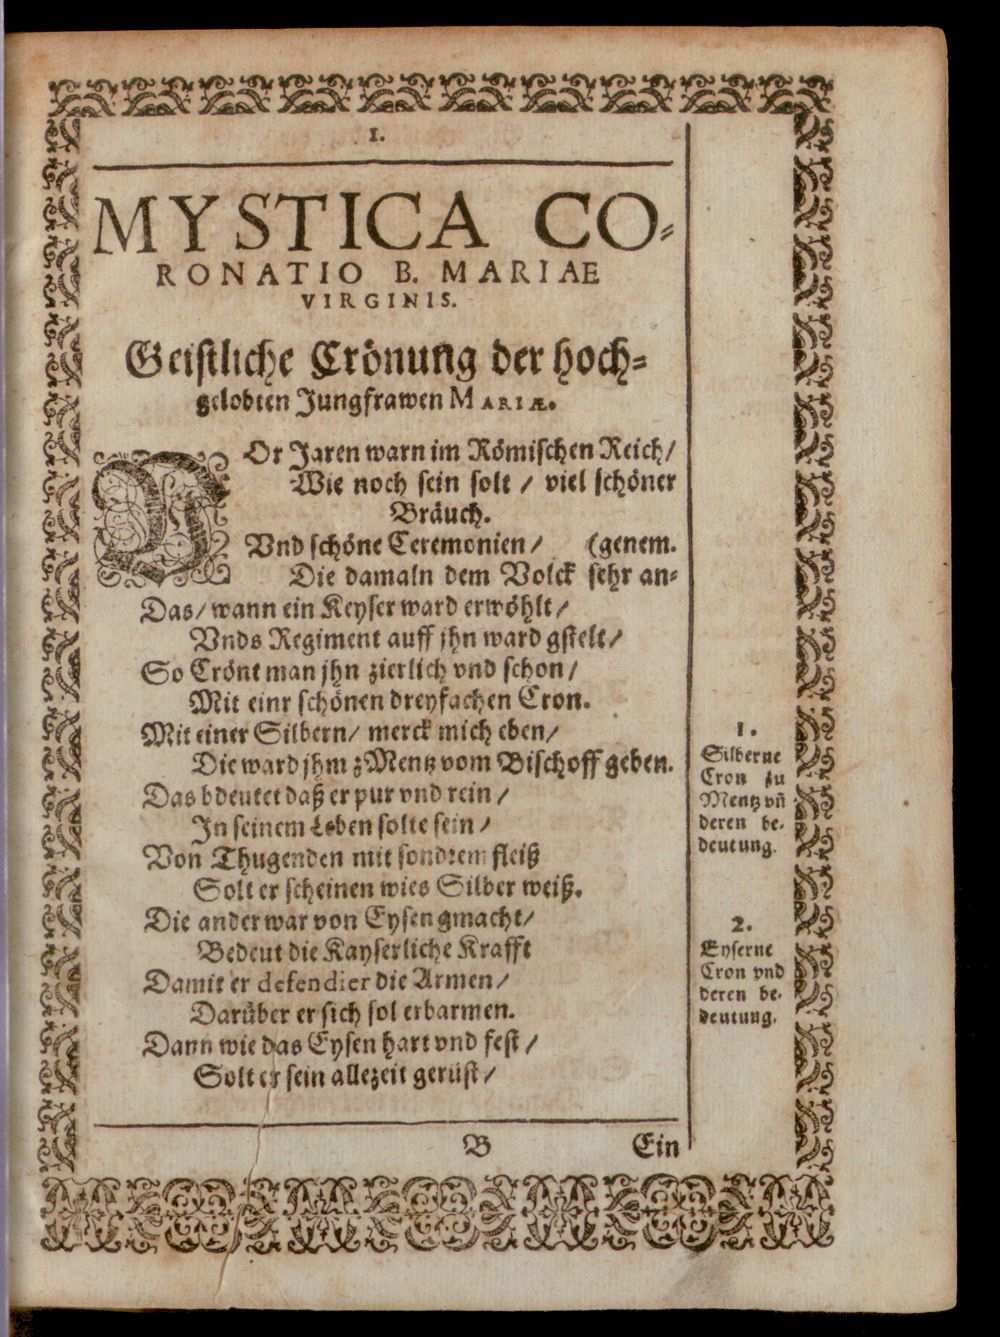 1.
MYSTICA CO-
RONATIO B. MARIAE
VIRGINIS.
Geistliche Crönung der hoch-
gelobten Jungfrawen MARIÆ.
VOr Jaren warn im Römischen Reich/
Wie noch sein solt / viel schöner
Bräuch.
Vnd schöne Ceremonien / (genem.
Die damaln dem Volck sehr an-
Das/ wann ein Keyser ward erwöhlt/
Vnds Regiment auff jhn ward gstelt/
So Crönt man jhn zierlich vnd schon/
Mit einr schönen dreyfachen Cron.
Mit einer Silbern/ merck mich eben/
Die ward jhm zMentz vom Bischoff geben.
Das bdeutet daß er pur vnd rein /
In seinem Leben solte sein /
Von Thugenden mit sondrem fleiß
Solt er scheinen wies Silber weiß.
Die ander war von Eysen gmacht/
Bedeut die Kayserliche Krafft
Damit er defendier die Armen/
Darüber er sich sol erbarmen.
Dann wie das Eysen hart vnd fest /
Solt er sein allezeit gerüst/
1.
Silberne
Cron zu
Mentz vn̄
deren be-
deutung.
2.
Eyserne
Cron vnd
deren be-
deutung.
B Ein